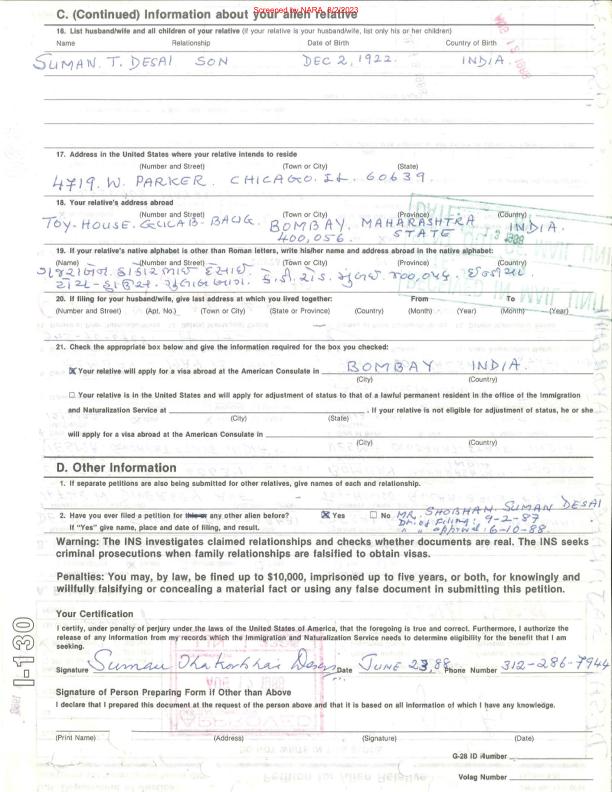 Screened by NARA, 8/2/2023
C. (Continued) Information about your alien relative
16. List husband/wife and all children of your relative (if your relative is your husband/wife, list only his or her children)
Name Relationship Date of Birth Country of Birth
SUMAN. T. DESAI SON DEC 2, 1922. INDIA.
17. Address in the United States where your relative intends to reside
(Number and Street) (Town or City) (State)
4719. W. PARKER. CHICAGO. IL. 60639.
18. Your relative's address abroad
(Number and Street) (Town or City) (Province) (Country)
TOY-HOUSE. GULAB-BAUG. BOMBAY. MAHARASHTRA INDIA.
400,056. STATE
19. If your relative's native alphabet is other than Roman letters, write his/her name and address abroad in the native alphabet:
(Name) (Number and Street) (Town or City) (Province) (Country)
દેસાઈ
૪૦૦,૦૫૬.
20. If filing for your husband/wife, give last address at which you lived together: From To
(Number and Street) (Apt. No.) (Town or City) (State or Province) (Country) (Month) (Year) (Month) (Year)
21. Check the appropriate box below and give the information required for the box you checked:
Your relative will apply for a visa abroad at the American Consulate in BOMBAY INDIA.
(City) (Country)
Your relative is in the United States and will apply for adjustment of status to that of a lawful permanent resident in the office of the Immigration
and Naturalization Service at . If your relative is not eligible for adjustment of status, he or she
(City) (State)
will apply for a visa abroad at the American Consulate in
(City) (Country)
D. Other Information
1. If separate petitions are also being submitted for other relatives, give names of each and relationship.
2. Have you ever filed a petition for this or any other alien before? Yes No MR. SHOBHAN. SUMAN DESAI
Dt. of Filing: 9-2-87
If "Yes" give name, place and date of filing, and result. 6-10-88
Warning: The INS investigates claimed relationships and checks whether documents are real. The INS seeks
criminal prosecutions when family relationships are falsified to obtain visas.
Penalties: You may, by law, be fined up to $10,000, imprisoned up to five years, or both, for knowingly and
willfully falsifying or concealing a material fact or using any false document in submitting this petition.
Your Certification
I certify, under penalty of perjury under the laws of the United States of America, that the foregoing is true and correct. Furthermore, I authorize the
release of any information from my records which the Immigration and Naturalization Service needs to determine eligibility for the benefit that I am
seeking.
Signature Suman Thakorbhai Desai Date JUNE 23, 88 Phone Number 312-286-7944
Signature of Person Preparing Form if Other than Above
I declare that I prepared this document at the request of the person above and that it is based on all information of which I have any knowledge.
(Print Name) (Address) (Signature) (Date)
G-28 ID Number
Volag Number
I-130